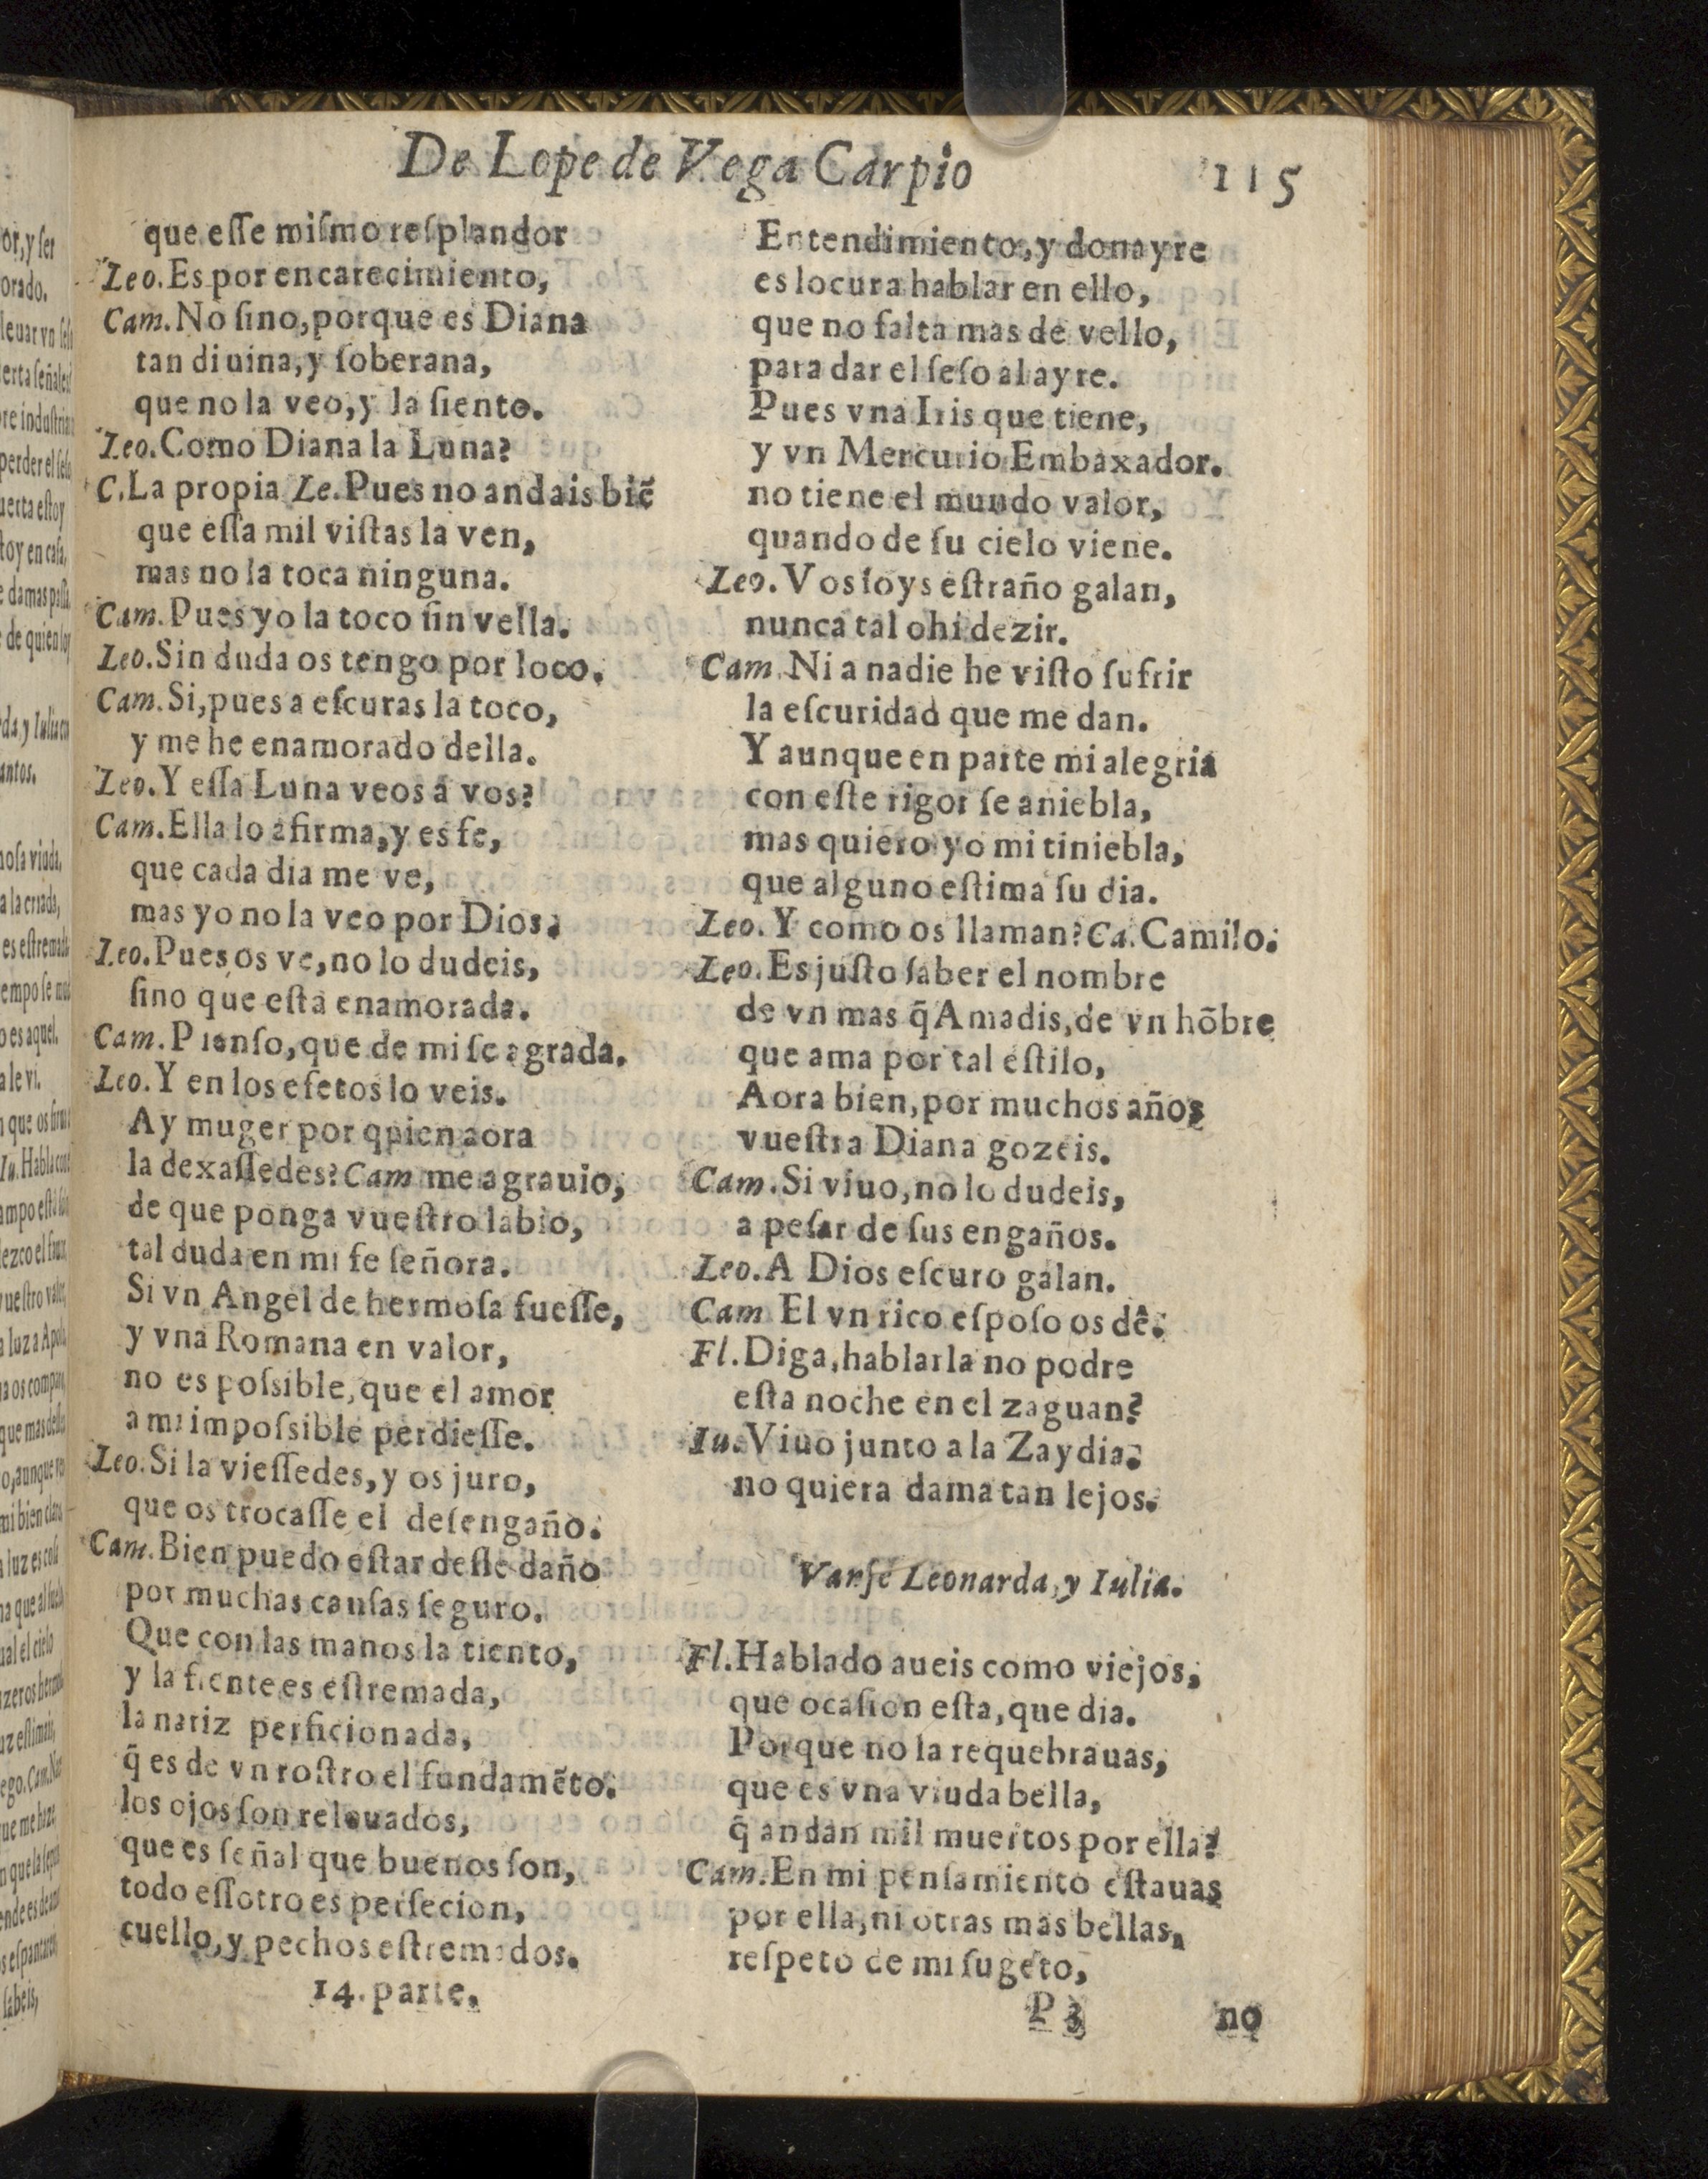 De Lope de Vega Carpio 115
que esse mismo resplandor
Leo. Es por encarecimiento,
Cam. No sino, porque es Diana
tan diuina, y soberana,
que no la veo, y la siento.
Leo. Como Diana la Luna?
C. La propia Le. Pues no andais biẽ
que essa mil vistas la ven,
mas no la toca ninguna.
Cam. Pues yo la toco sin vella.
Leo. Sin duda os tengo por loco.
Cam. Si, pues a escuras la toco,
y me he enamorado della.
Leo. Y essa Luna veos á vos?
Cam. Ella lo afirma, y es fe,
que cada dia me ve,
mas yo no la veo por Dios.
Leo. Pues os ve, no lo dudeis,
sino que está enamorada.
Cam. Pienso, que de mi se agrada.
Leo. Y en los efetos lo veis.
Ay muger por qnien aora
la dexassedes? Cam me agrauio,
de que ponga vuestro labio,
tal duda en mi fe señora.
Si vn Angel de hermosa fuesse,
y vna Romana en valor,
no es possible, que el amor
a mi impossible perdiesse.
Leo. Si la viessedes, y os juro,
que os trocasse el desengaño.
Cam. Bien puedo estar desse daño
por muchas causas seguro.
Que con las manos la tiento,
y la frente es estremada,
la nariz perficionada,
q̃ es de vn rostro el fundamẽto.
los ojos son releuados,
que es señal que buenos son,
todo essotro es perfecion,
cuello, y pechos estremados.
14. parte.
Entendimiento, y donayre
es locura hablar en ello,
que no falta mas de vello,
para dar el seso al ayre.
Pues vna Iris que tiene,
y vn Mercurio Embaxador.
no tiene el mundo valor,
quando de su cielo viene.
Leo. Vos soys estraño galan,
nunca tal ohi dezir.
Cam. Ni a nadie he visto sufrir
la escuridad que me dan.
Y aunque en parte mi alegria
con este rigor se aniebla,
mas quiero yo mi tiniebla,
que alguno estima su dia.
Leo. Y como os llaman? Ca. Camilo.
Leo. Es justo saber el nombre
de vn mas q̃ Amadis, de vn hõbre
que ama por tal estilo,
Aora bien, por muchos años
vuestra Diana gozeis.
Cam. Si viuo, no lo dudeis,
a pesar de sus engaños.
Leo. A Dios escuro galan.
Cam El vn rico esposo os dê.
Fl. Diga, hablarla no podre
esta noche en el zaguan?
Iu. Viuo junto a la Zaydia.
no quiera dama tan lejos.
Vanse Leonarda, y Iulia.
Fl. Hablado aueis como viejos,
que ocasion esta, que dia.
Porque no la requebrauas,
que es vna viuda bella,
q̃ andan mil muertos por ella?
Cam. En mi pensamiento estauas
por ella, ni otras mas bellas,
respeto de mi sugeto,
P 3 no